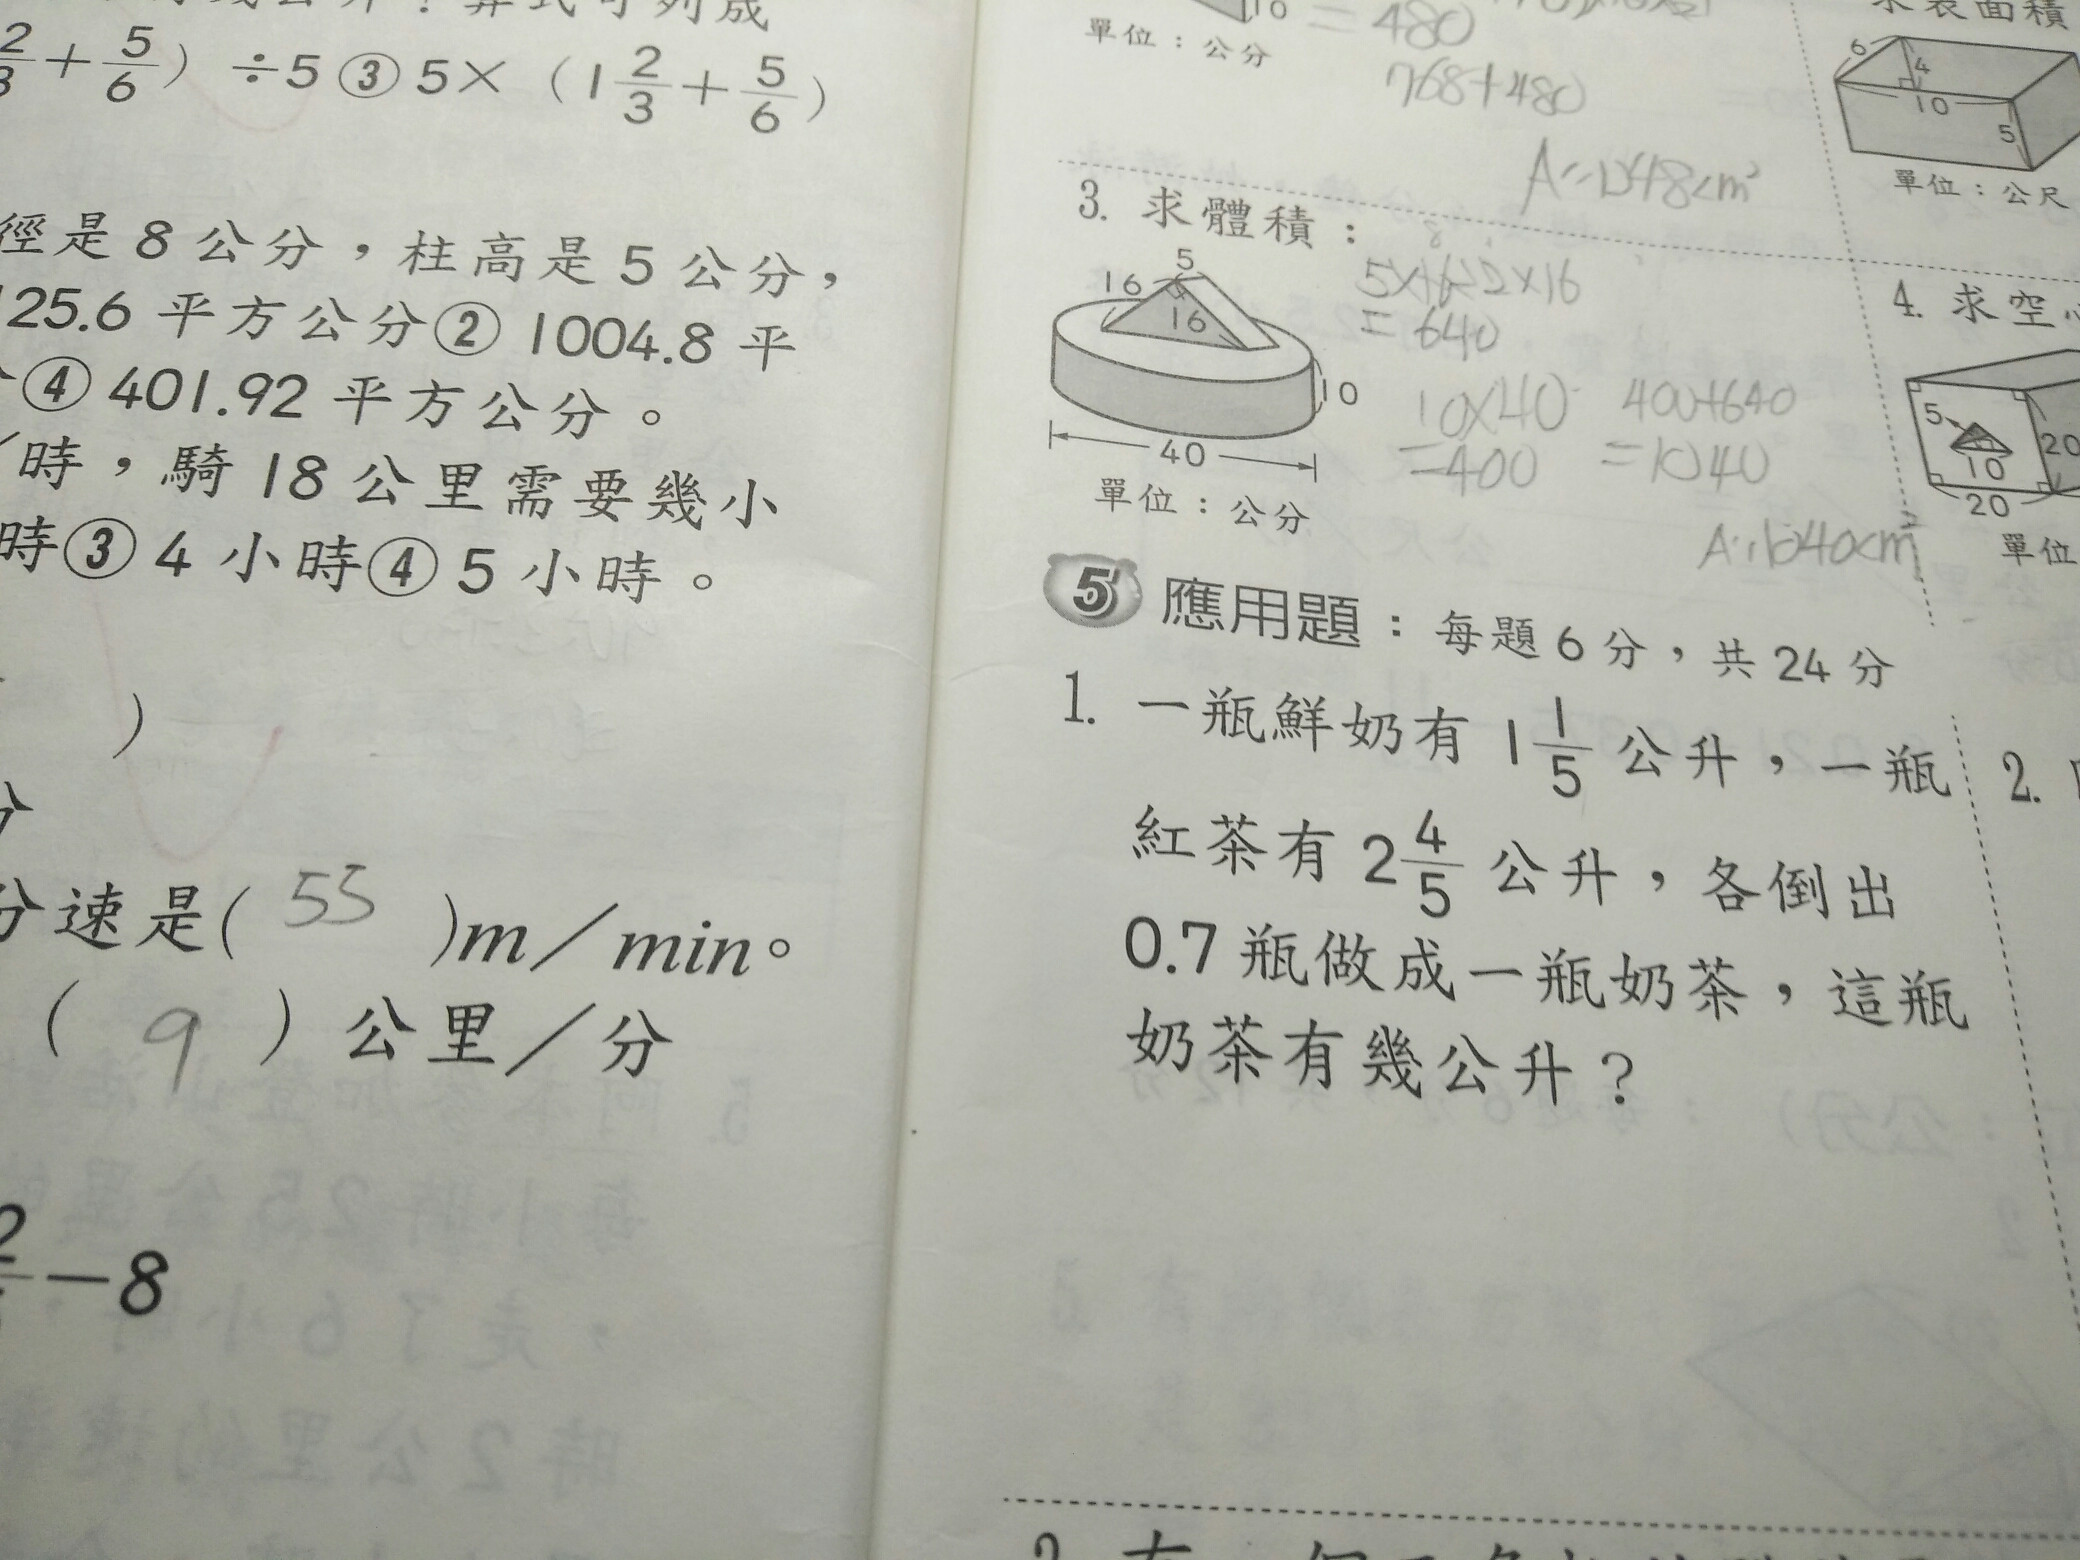 2/3+5/6）÷5③5×（1 2/3+5/6）
徑是8公分，柱高是5公分，
125.6平方公分②1004.8平
④401.92平方公分。
/時，騎18公里需要幾小
時③4小時④5小時。
)
分
分速是(55)m/min。
(9)公里/分
-8
10
單位：公分
=480
768+480
A:1248cm³
求表面積
6
4
10
5
單位：公尺
3. 求體積：
5
16
16
10
40
單位：公分
5×16÷2×16
=640
10×40
=400
400+640
=1040
A:1040cm³
4. 求空心
5
10
20
20
單位
5 應用題：每題6分，共24分
1. 一瓶鮮奶有1 1/5公升，一瓶
紅茶有2 4/5公升，各倒出
0.7瓶做成一瓶奶茶，這瓶
奶茶有幾公升？
2.